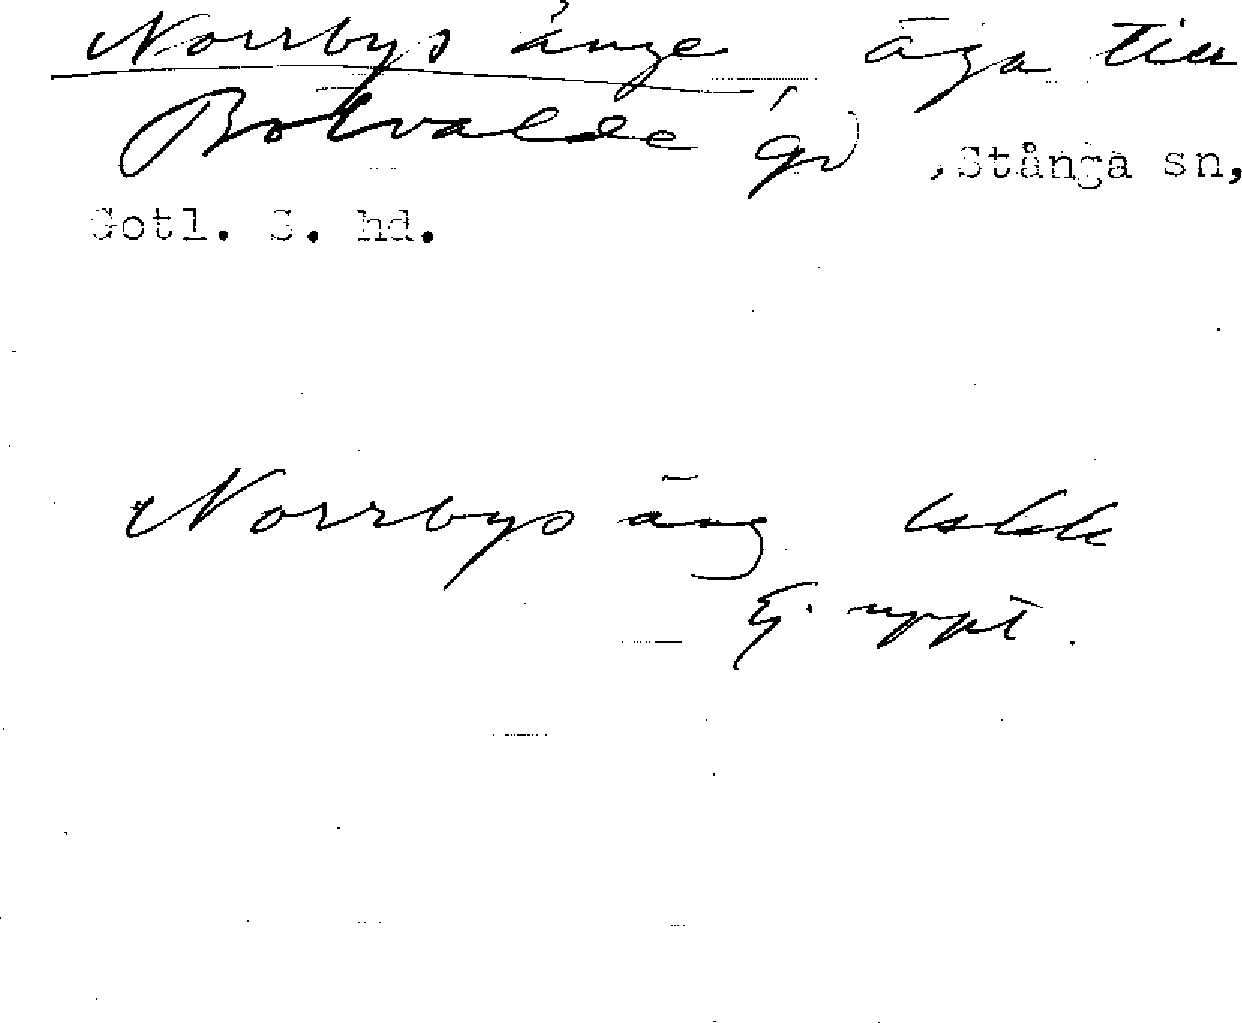 Norrbys änge äga till
Botvalde gd , Stånga sn,
Gotl. S. hd.
Norrbys äng
Ej uppt.